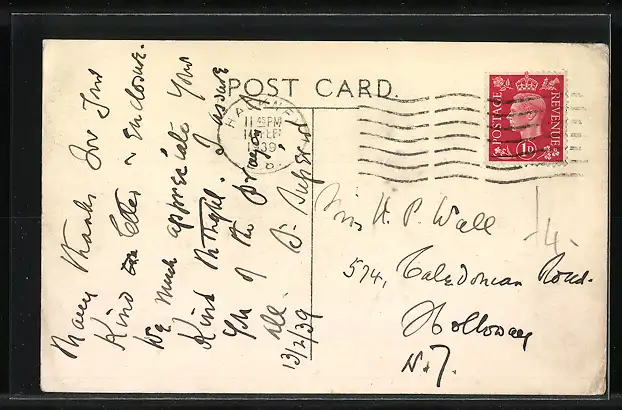 POST CARD.
Many thanks for your
Kind letter & enclosure.
We much appreciate your
Kind thought. I assure
you of the prayers
all.
13/2/39
11 45 PM
14 FE
1939
POSTAGE
REVENUE
1D
Miss H. P. Wall
574, Caledonian Road.
Holloway
N.7.